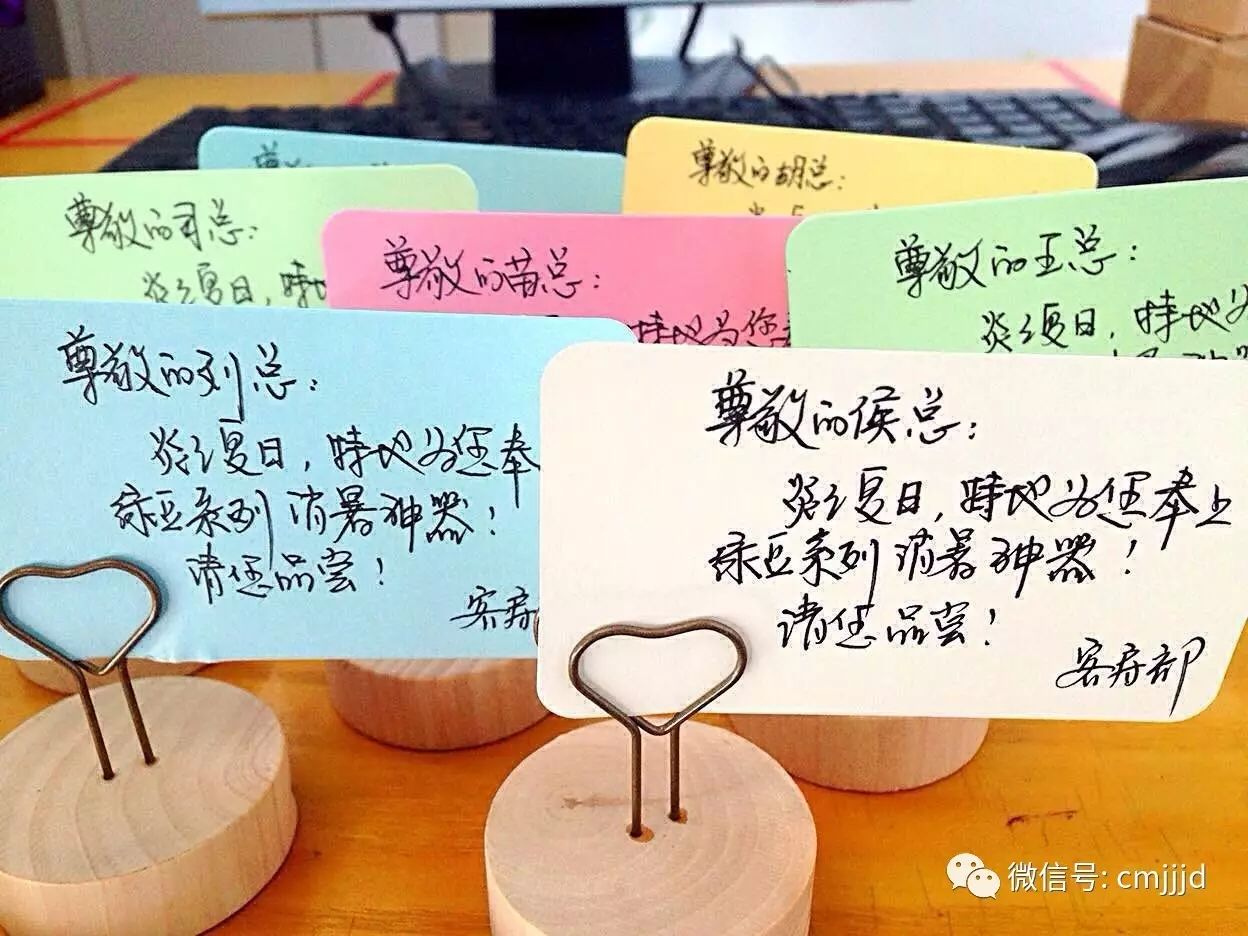 尊敬的
尊敬的胡总:
尊敬的司总:
炎之夏日,特
尊敬的苗总:
特地为您
尊敬的王总:
炎之夏日,特地为
尊敬的刘总:
炎之夏日,特地为您奉
绿豆系列消暑神器!
请您品尝!
客房
尊敬的侯总:
炎之夏日,特地为您奉上
绿豆系列消暑神器!
请您品尝!
客房部
微信号: cmjjjd